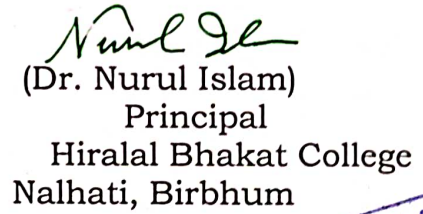 Nurul Islam
(Dr. Nurul Islam)
Principal
Hiralal Bhakat College
Nalhati, Birbhum